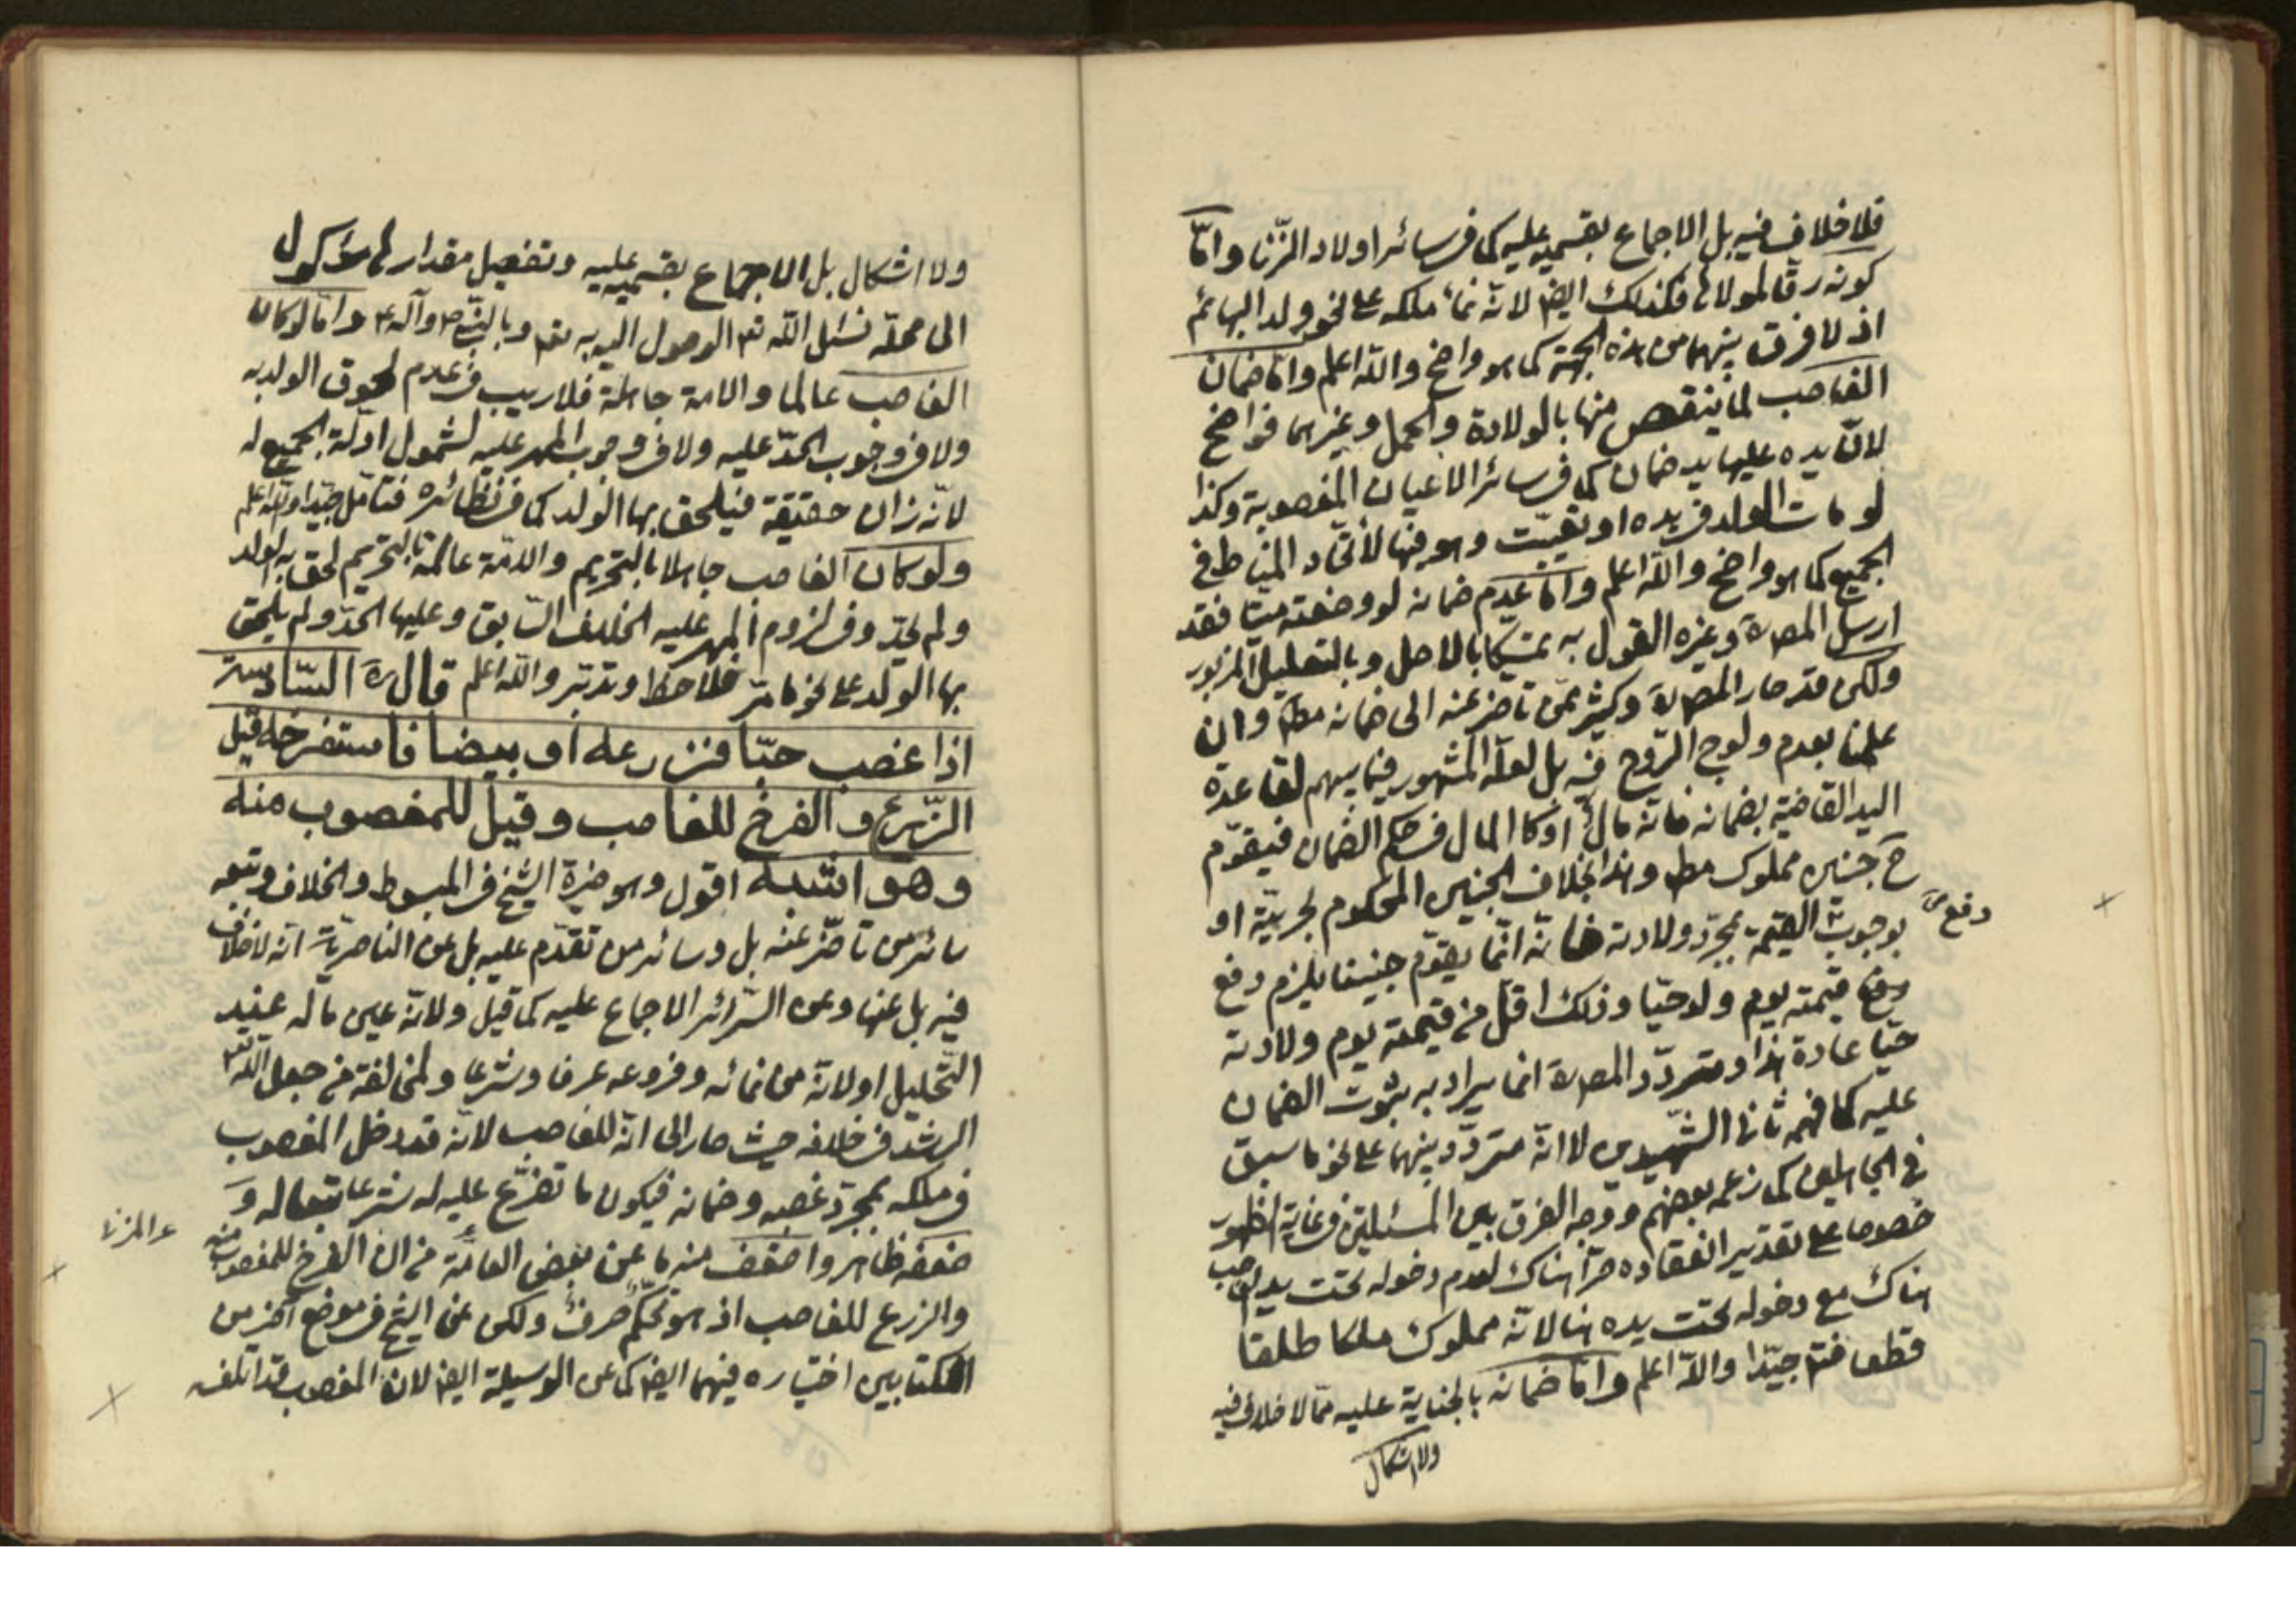 فلا خلاف فيه بل الاجماع بقسميه عليه كما في سائر اولاد الزنا وامّا
كونه رقا لمولاها فكذلك ايضا لانّه نماء ملكه على نحو ولد البهائم
اذ لا فرق بينهما من هذه الجهة كما هو واضح والله اعلم وامّا ضمان
الغاصب لما ينقص منها بالولادة والحمل وغيرهما فواضح
لانّ يده عليها يد ضمان كما في سائر الاعيان المغصوبة وكذا
لو مات الولد في يده او تعيّبت وهو فيها لاتّحاد المناط في
الجميع كما هو واضح والله اعلم وامّا عدم ضمانه لو وضعته ميتا فقد
ارسل المصره وغيره القول به تمسّكا بالاصل وبالتعليل المزبور
ولكن قد صار المصره وكثير ممّن تاخر عنه الى ضمانه مط وان
علمنا بعدم ولوج الرّوح فيه بل لعلّه المشهور فيما بينهم لقاعدة
اليد القاضية بضمانه فانّه مال او كالمال في حكم الضمان فيقوّم
ح جنين مملوك مط وهذا بخلاف الجنين المحكوم بحريّته او
بوجوب القيمة بمجرّد ولادته فانّه انّما يقوّم جنينا يلزم دفع
دفع
دفع قيمته يوم ولد حيّا وذلك اقلّ من قيمته يوم ولادته
حيّا عادة هذا ومتردّد المصره انما يراد به ثبوت الضمان
عليه كما فهمه ثاني الشهيدين لا انّه متردّد بينهما على نحو ما سبق
في الجاهلين كما زعمه بعضهم ووجه الفرق بين المسئلتين في غاية الظهور
خصوصا على تقدير انعقاده حرّا هناك لعدم دخوله تحت يد الغاصب
هناك مع دخوله تحت يده هنا لانّه مملوك ملكا طلقا
قطعا فتم جيّدا والله اعلم وامّا ضمانه بالجناية عليه ممّا لا خلاف فيه
ولا اشكال
ولا اشكال بل الاجماع بقسميه عليه وتفصيل مقدارها موكول
الى محلّه نسئل الله تم الوصول اليه به تم وبالنبي ص وآله ع وامّا لو كان
الغاصب عالما والامة جاهلة فلا ريب في عدم لحوق الولد به
ولا في وجوب الحدّ عليه ولا في وجوب المهر عليه لشمول ادلّة الجميع له
لانّه زان حقيقة فيلحق بها الولد كما في نظائره فتامل جيّدا والله اعلم
ولو كان الغاصب جاهلا بالتحريم والامة عالمة بالتحريم لحق به الولد
ولم يحدّ وفي لزوم المهر عليه الخلاف السّابق وعليها الحدّ ولم يلحق
بها الولد على نحو ما مرّ فلاحظ وتدبّر والله اعلم قال ره السّادسة
اذا غصب حبّا فزرعه او بيضا فاستفرخه قيل
الزّرع والفرخ للغاصب وقيل للمغصوب منه
وهو اشبه اقول وهو خيرة الشيخ في المبسوط والخلاف وتبعه
سائر من تاخّر عنه بل وسائر من تقدّم عليه بل عن الناصريّة انّه لا خلاف
فيه بل عنها وعن السّرائر الاجماع عليه كما قيل ولانّه عين ماله عنيد
التحليل او لانّه من نمائه وفروعه عرفا وشرعا ولمخالفة من جعل الله
الرشد في خلافه حيث صار الى انّه للغاصب لانّه قد دخل المغصوب
في ملكه بمجرّد غصبه وضمانه فيكون ما تفرّع عليه له شرعا تبعا له و
ضعفه ظاهر واضعف منه ما عن بعض العامّة من ان الفرخ للمغصوب منه
والزرع للغاصب اذ هو تحكّم صرف ولكن عن الشيخ في موضع آخر من
الكتابين اختياره فيهما ايضا كما عن الوسيلة ايضا لان المغصوب قد اتلفه